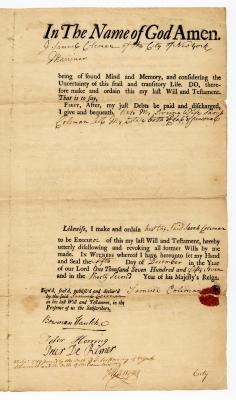 In The Name of God Amen.
I Samuel Coleman of the City of New York
Mariner
being of sound Mind and Memory, and considering the
Uncertainty of this frail and transitory Life. DO, there-
fore make and ordain this my last Will and Testament.
That is to say,
FIRST, After, my just Debts be paid and discharged,
I give and bequeath, unto My Loving Wife Sarah
Coleman all My Estate both Real & Personal
Likewise, I make and ordain her My said Sarah Coleman
to be Executrix of this my last Will and Testament, hereby
utterly disallowing and revoking all former Wills by me
made. In WITNESS whereof I have hereunto set my Hand
and Seal the fifth Day of December in the Year
of our Lord One Thousand Seven Hundred and Fifty Seven
and in the Thirty Second Year of his Majesty's Reign.
Sign'd, seal'd, publish'd and declar'd
by the said Samuel Coleman
as his last Will and Testament, in the
Presence of us the Subscribers,
Samuel Coleman
Peter Herring
City